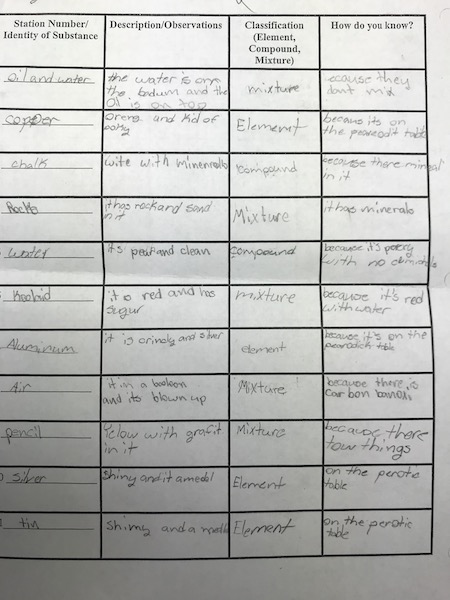 Station Number/
Identity of Substance
Description/Observations
Classification
(Element,
Compound,
Mixture)
How do you know?
oil and water
the water is on
the bodum and the
oil is on top
mixture
ecause they
dont mix
copper
orens and kid of
Element
becaus its on
the table
chalk
wite with minenrals
compound
because there mineral
in it
Rocks
it has rock and sand
in it
Mixture
it has minerals
water
its and clean
compound
because it's
with no
Koolaid
it is red and has
sugur
mixture
because it's red
with water
Aluminum
it is crincky and silver
element
because it's on the
table
Air
it in a baloon
and its blown up
Mixture
because there is
car bon
pencil
Yelow with grafit
in it
Mixture
because there
tow things
silver
Shiny and it a medal
Element
on the perotic
table
tin
Shiny and a
Element
on the perotic
table